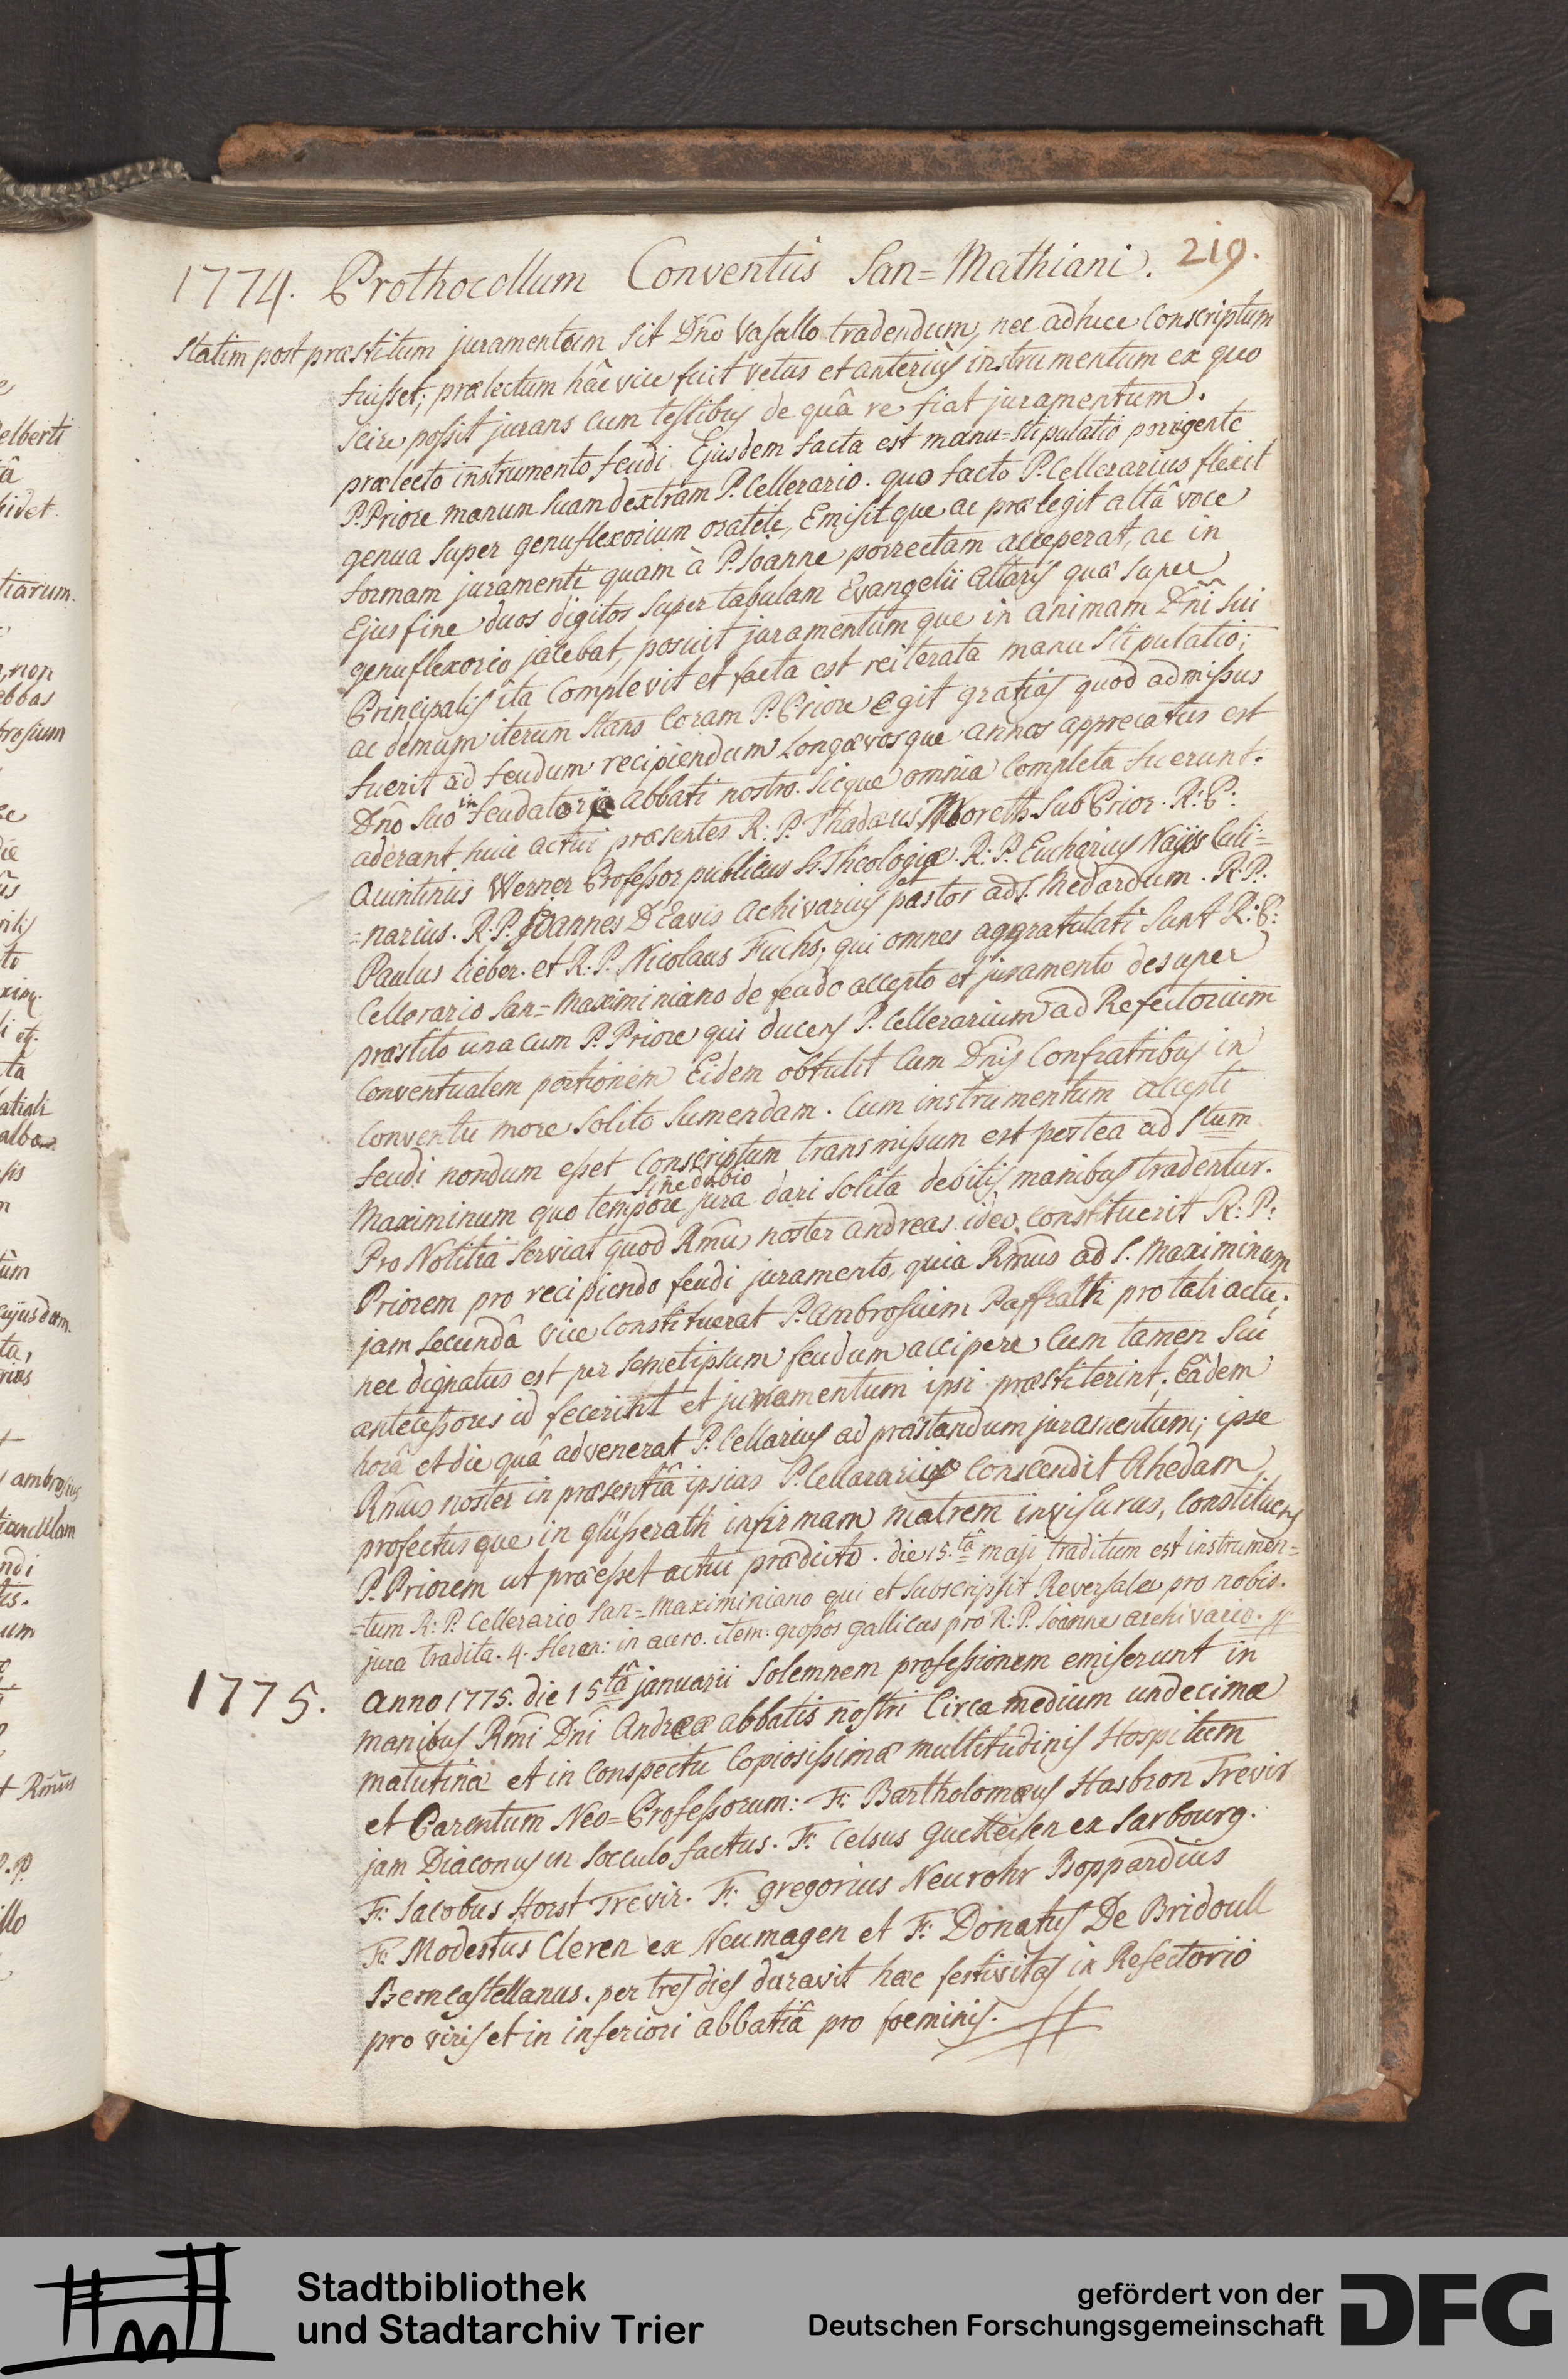 219.
1774. Prothocollum Conventûs San=Mathiani.
statim post præstitum juramentum sit Dno Vasallo tradendum, nec adhuc conscriptum
fuisset; prælectum hâc vice fuit vetus et anterius instrumentum ex quo
scire possit jurans cum testibus de quâ re fiat juramentum.
prælecto instrumento feudi Ejusdem facta est manu=stipulatio porrigente
P. Priore manum suam dextram P. Cellerario. quo facto P. Cellerarius flexit
genua super genuflexorium oratele, Emisitque ac prælegit altâ voce
formam juramenti quam à P. Joanne porrectam acceperat, ac in
Ejus fine duos digitos super tabulam Evangelii altaris quæ super
genuflexorio jacebat, posuit juramentumque in animam Dni sui
Principalis ita complevit et facta est reiterata manu stipulatio;
ac demum iterum stans coram P. Priore egit gratias quod admissus
fuerit ad feudum recipiendum longævosque annos apprecatus est
Dno suo in feudatorio abbati nostro. sicque omnia completa fuerunt.
aderant huic actui præsentes R: P. Thadæus Moreth SubPrior. R: P:
Quintinus Werner Professor publicus S. Theologiæ. R: P. Eucharius Nays Culi=
=narius. R: P. Joannes D Eavis achivarius pastor ad S. Medardum. R: P:
Paulus Lieber. et R: P. Nicolaus Fuchs; qui omnes aggratulati sunt R: P:
Cellerario San=Maximiniano de feudo accepto et juramento desuper
præstito una cum P. Priore qui ducens P. Cellerarium ad Refectorium
conventualem portionem Eidem obtulit cum Dnis Confratribus in
conventu more solito sumendam. Cum instrumentum accepti
feudi nondum esset conscriptum transmissum est postea ad Stum
Maximinum quo tempore sine dubio jura dari solita debitis manibus tradentur.
Pro Notitia serviat quod Rmus noster andreas ideo constituerit R: P:
Priorem pro recipiendo feudi juramento, quia Rmus ad S. Maximinum
jam secundâ vice constituerat P. Ambrosium Paffrath pro tali actu;
nec dignatus est per semetipsum feudum accipere cum tamen sui
antecessores id fecerint et juramentum ipsi præstiterint; Eâdem
horâ et die quâ advenerat P. Cellarius ad præstandum juramentum; ipse
Rmus noster in præsentiâ ipsius P. Cellararii conscendit Rhedam
profectusque in glüsserath infirmam matrem invisurus, constituens
P. Priorem ut præesset actui prædicto. die 15.tâ maji traditum est instrumen=
=tum R: P. Cellerario San=Maximiniano qui et subscripsit Reversales pro nobis.
jura tradita. 4. floren: in auro. item: grosos gallicus pro R: P. Joanne archivario.
1775. anno 1775. die 15tâ januarii solemnem professionem emiserunt in
manibus Rmi Dni Andreæ abbatis nostri circa medium undecimæ
matutinæ et in conspectu copiosissimæ multitudinis Hospitum
et Parentum Neo=Professorum: F: Bartholomæus Hasbron Trevir
jam Diaconus in sæculo factus. F: Celsus Quetteisen ex Sarbourg.
F: Jacobus Horst Trevir. F: Gregorius Neurohr Boppardius
F: Modestus Cleren ex Neumagen et F: Donatus De Bridoull
Berncastellanus. per tres dies duravit hæc festivitas in Refectorio
pro viris et in inferiori abbatiâ pro fœminis.
Stadtbibliothek
und Stadtarchiv Trier
gefördert von der
Deutschen Forschungsgemeinschaft
DFG